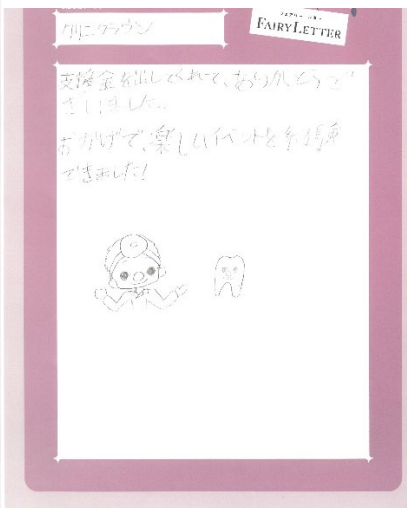 クリニクラウン
FAIRY LETTER
支援金を出してくれて、ありがとうご
ざいました。
おかげで、楽しいイベントを
できました!